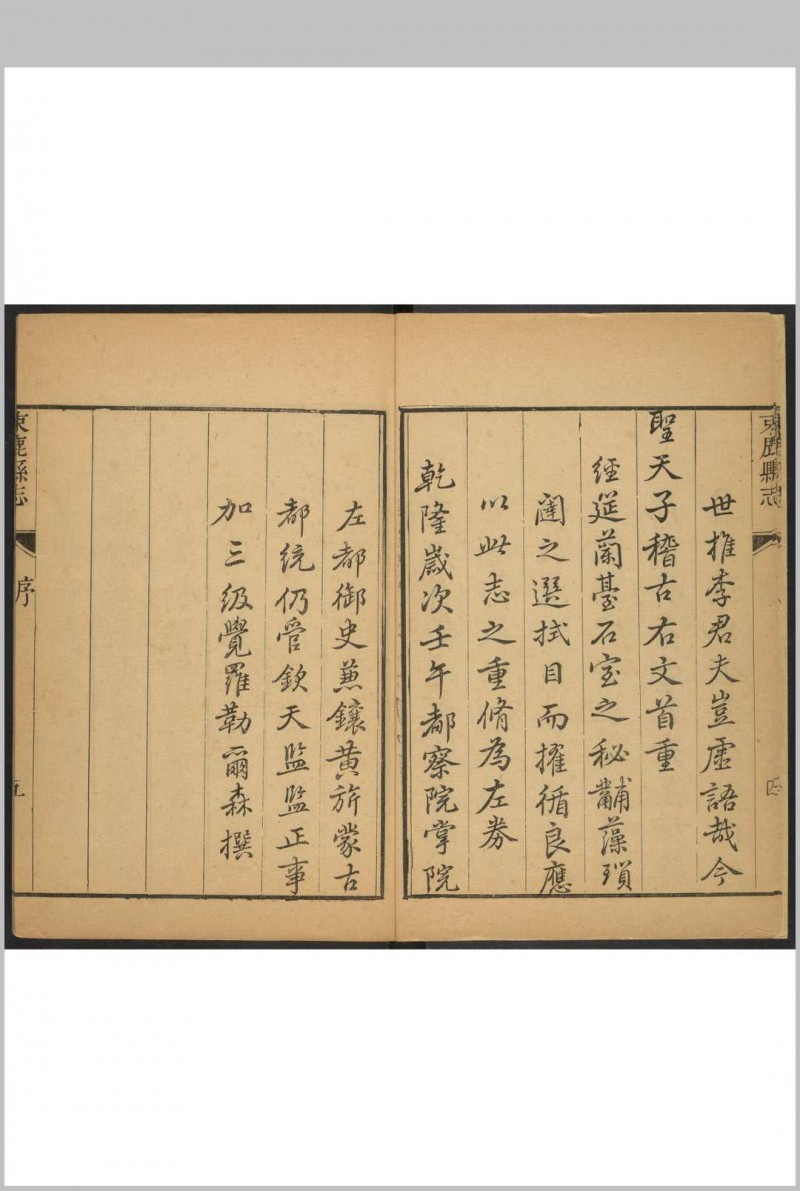 束鹿縣志
四
世推李君夫豈虛語哉今
聖天子稽古右文首重
經筵蘭臺石室之秘黼藻瑣
闥之選拭目而擢循良應
以此志之重脩為左券
乾隆歲次壬午都察院掌院
左都御史兼鑲黃旂蒙古
都統仍管欽天監監正事
加三級覺羅勒爾森撰
束鹿縣志
序
五